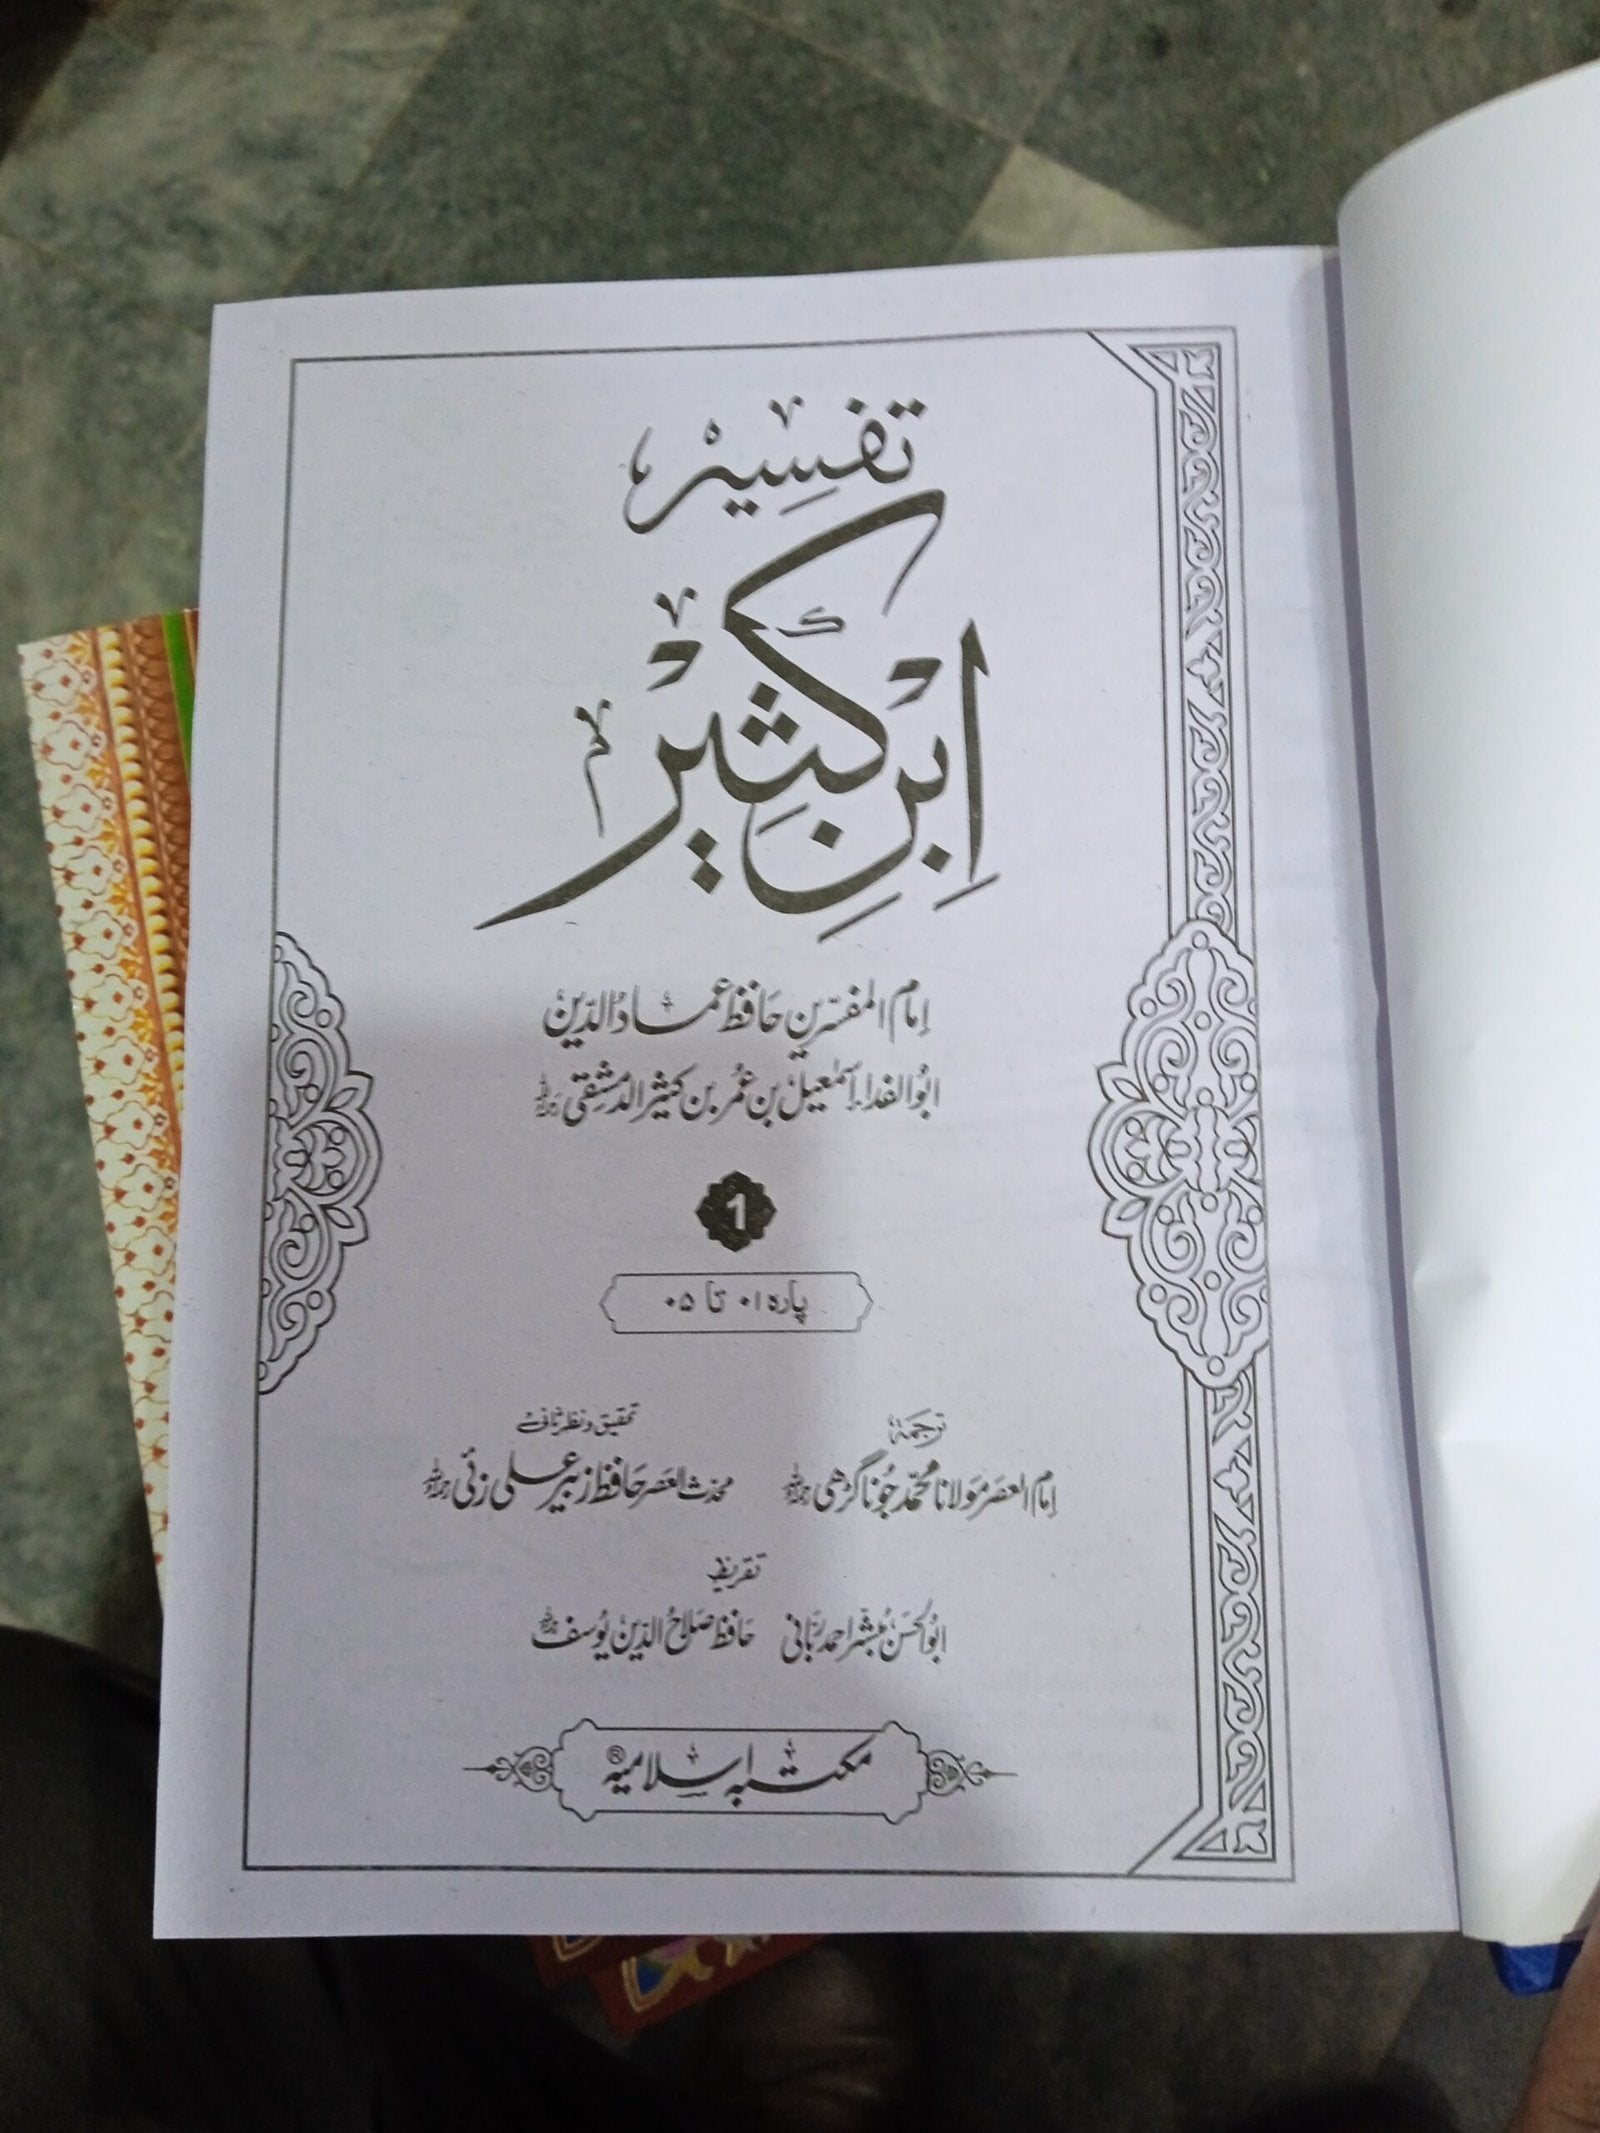 تفسیر
ابن کثیر
امام المفسرین حافظ عماد الدین
ابو الفداء اسمٰعیل بن عمر بن کثیر الدمشقی رحمہ اللہ
1
پارہ ۰۱ تا ۰۵
ترجمہ
امام العصر مولانا محمد جوناگڑھی رحمہ اللہ
تحقیق و نظر ثانی
محدث العصر حافظ زبیر علی زئی رحمہ اللہ
تقریظ
ابو الحسن مبشر احمد ربانی حافظ صلاح الدین یوسف
مکتبہ اسلامیہ ®